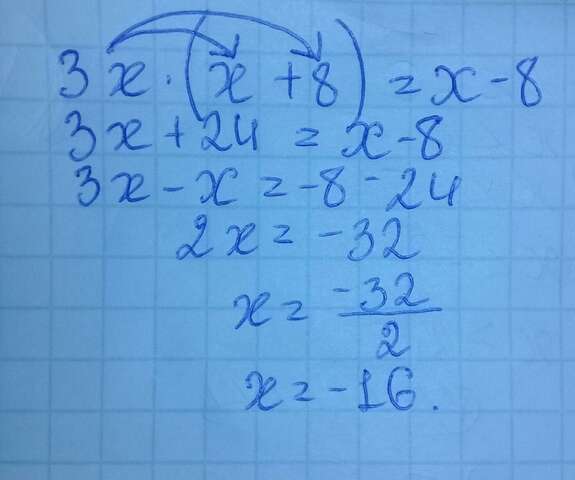 3x · (x + 8) = x - 8
3x + 24 = x - 8
3x - x = -8 - 24
2x = -32
x = -32/2
x = -16.